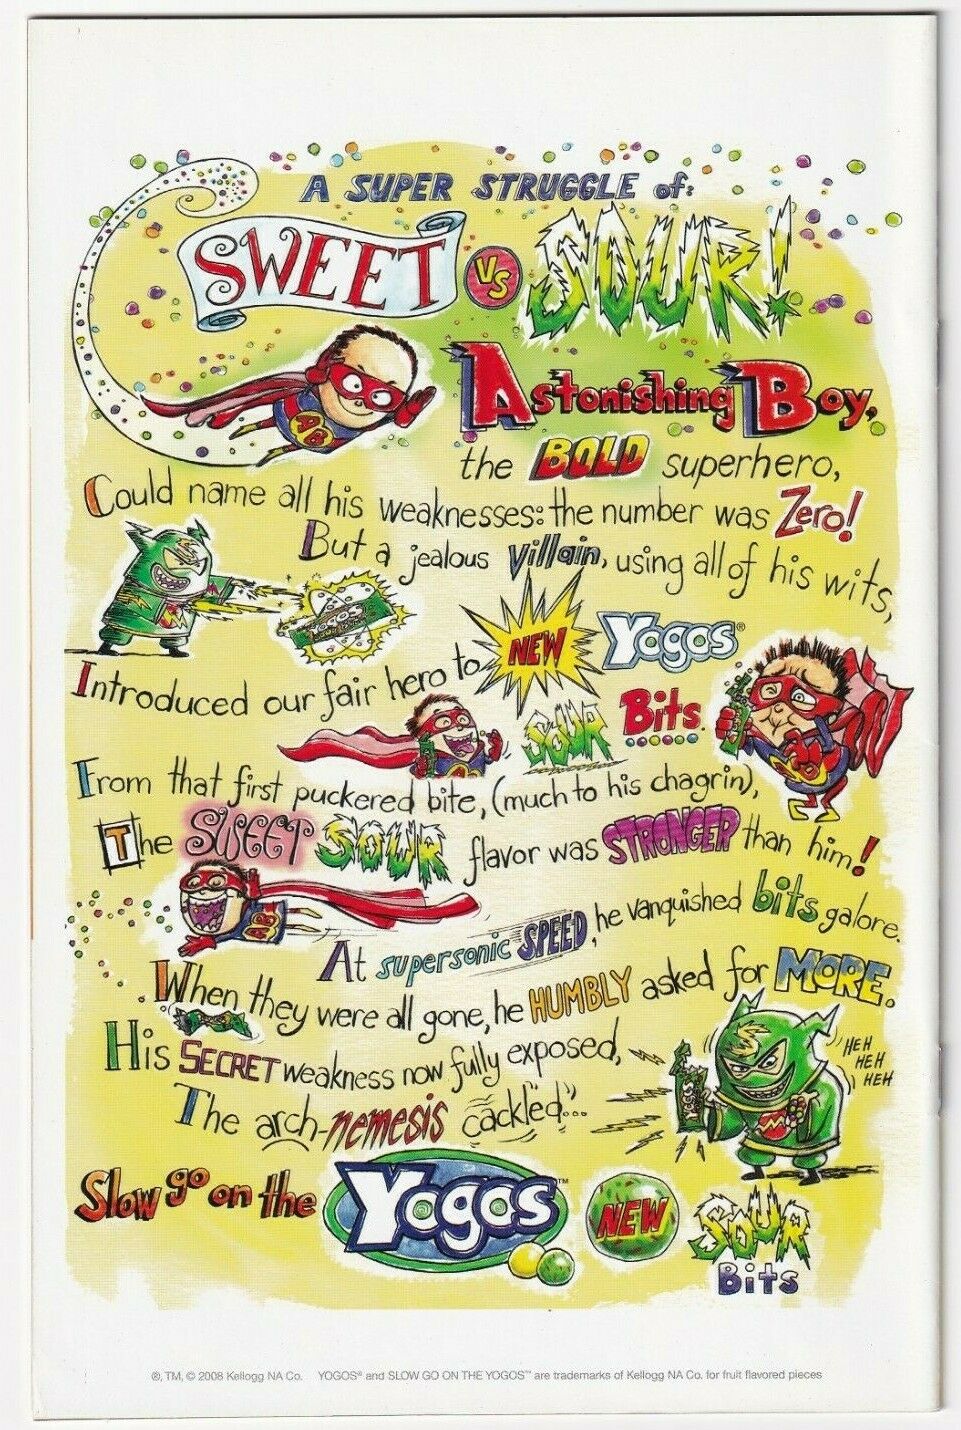 A SUPER STRUGGLE of:
SWEET VS SOUR!
AB
Astonishing Boy,
the BOLD superhero,
Could name all his weaknesses: the number was Zero!
But a jealous Villain, using all of his wits,
Introduced our fair hero to NEW Yogos®
SOUR Bits.
From that first puckered bite, (much to his chagrin),
The SWEET SOUR flavor was STRONGER than him!
AB
At supersonic SPEED, he vanquished bits galore.
When they were all gone, he HUMBLY asked for MORE.
His SECRET weakness now fully exposed,
HEH
HEH
HEH
The arch-nemesis cackled...
Slow go on the Yogos™ NEW SOUR
Bits
®, TM, © 2008 Kellogg NA Co. YOGOS® and SLOW GO ON THE YOGOS™ are trademarks of Kellogg NA Co. for fruit flavored pieces